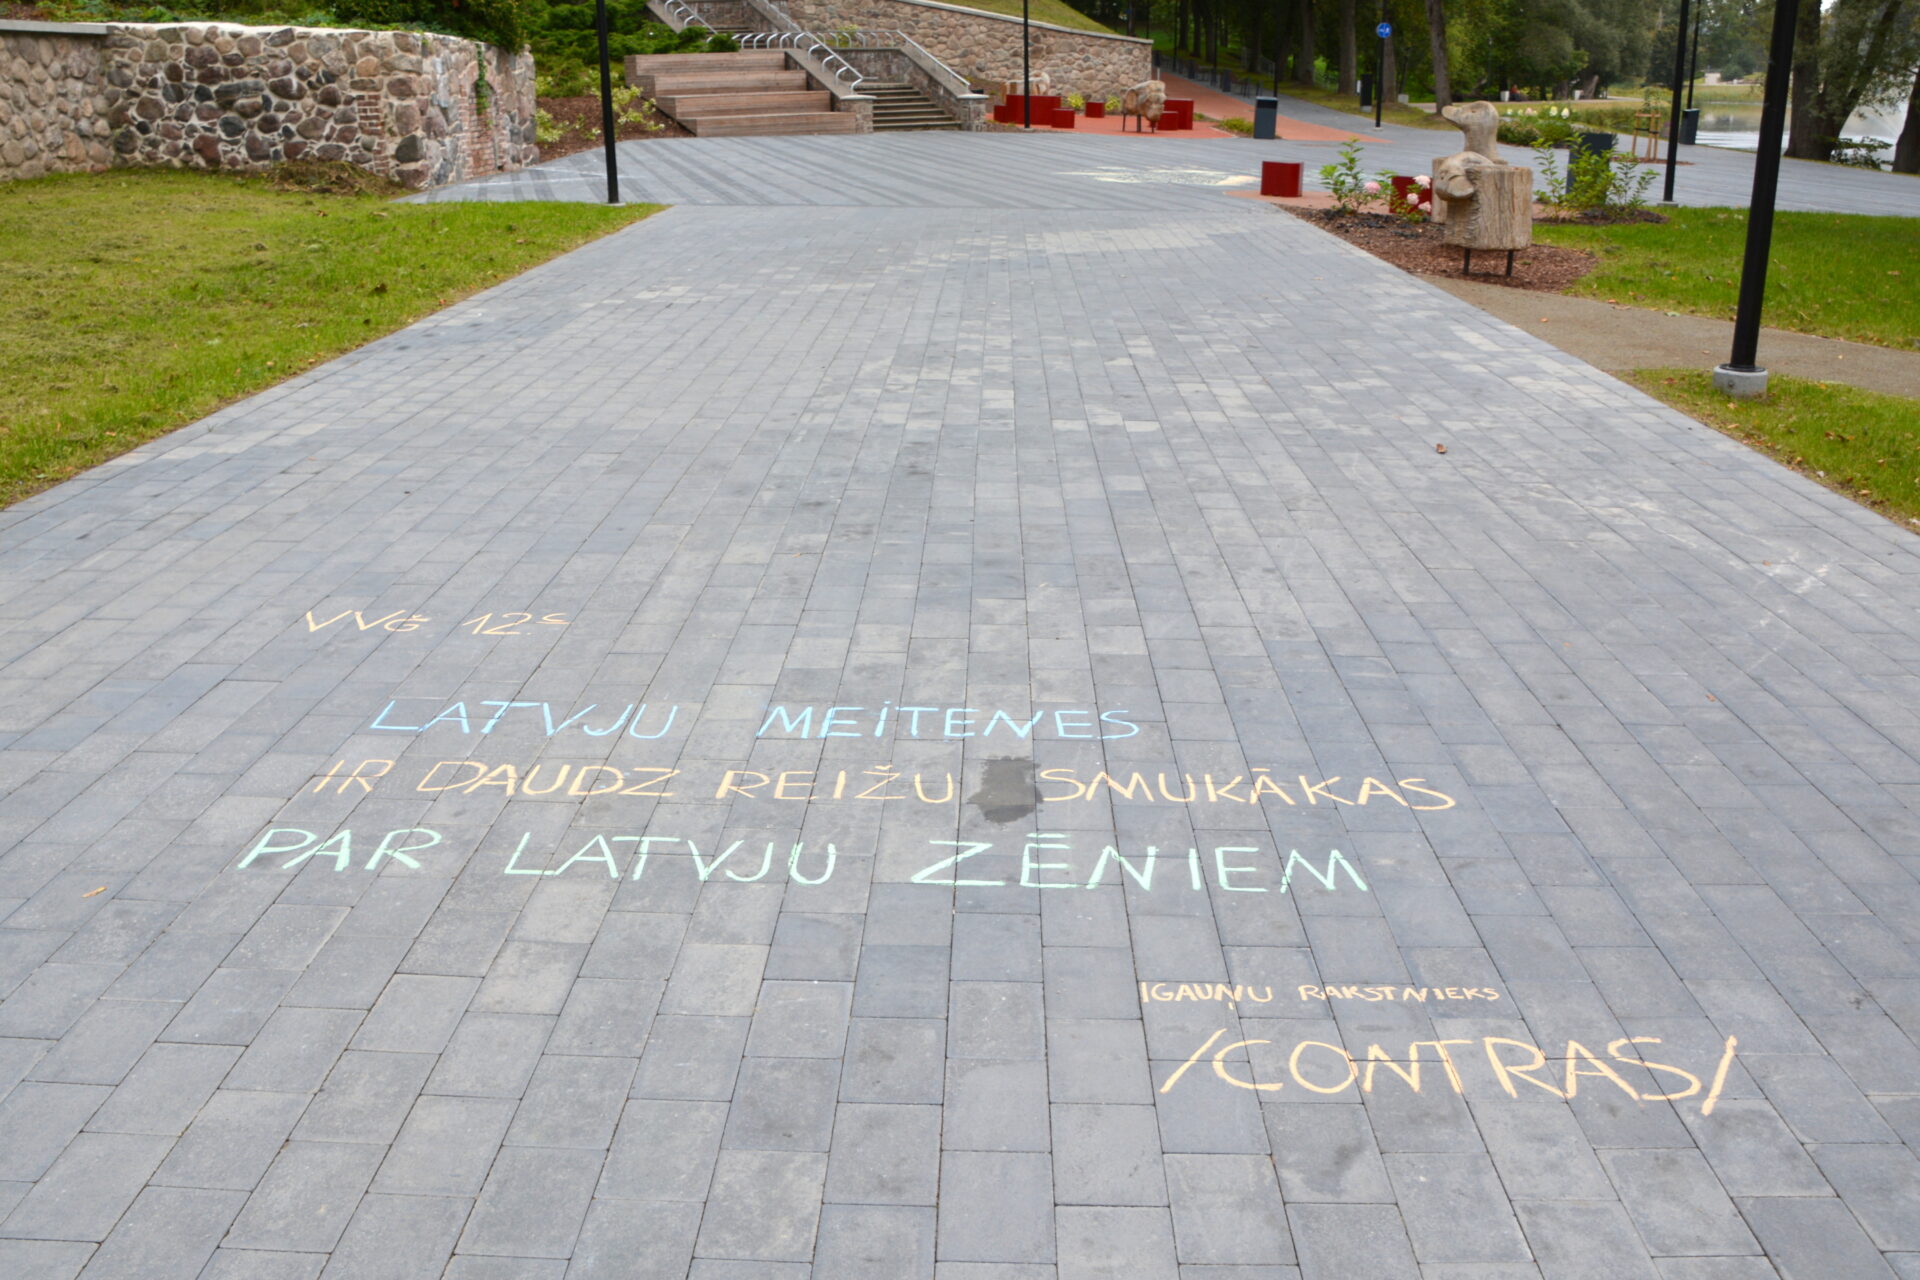 VVĢ 12.c
LATVJU MEITENES
IR DAUDZ REIŽU SMUKĀKAS
PAR LATVJU ZĒNIEM
IGAUŅU RAKSTNIEKS
/CONTRAS/